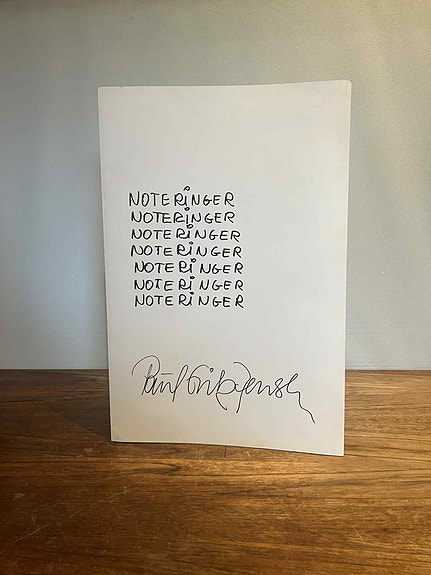 NOTERiNGER
NOTERiNGER
NOTERiNGER
NOTERiNGER
NOTERiNGER
NOTERiNGER
NOTERiNGER
Paul Gilgensh